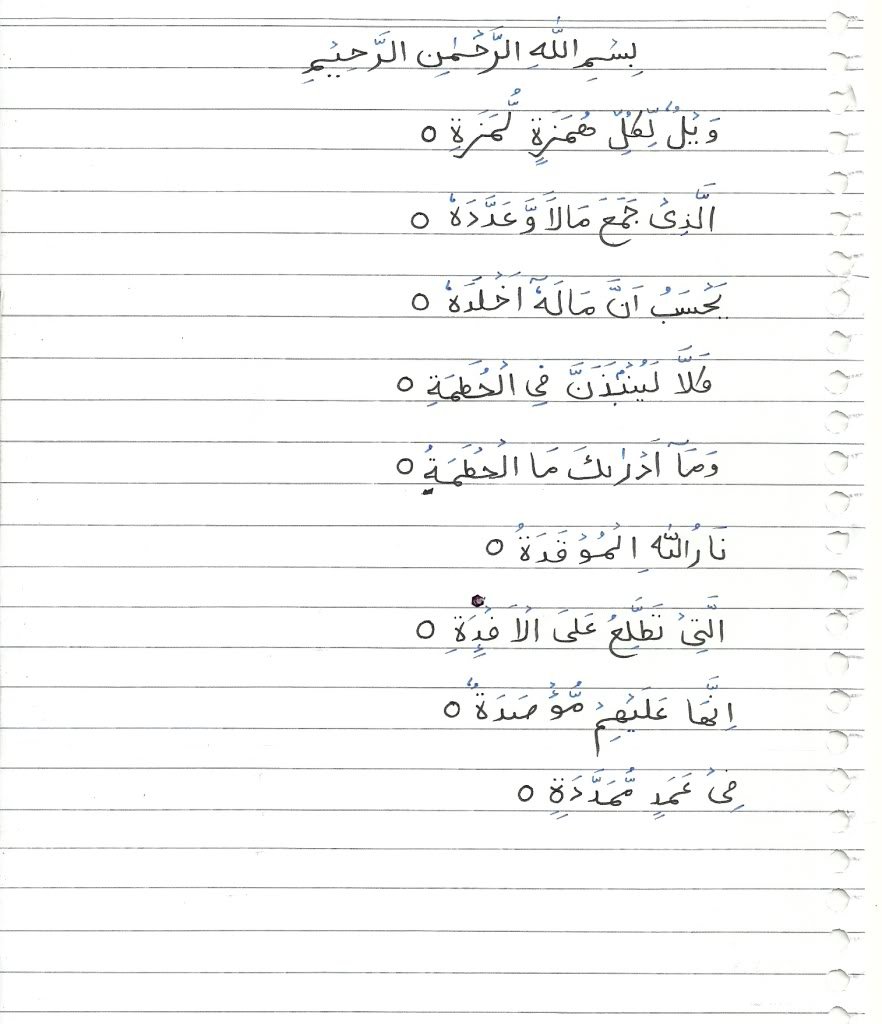 بِسْمِ اللّٰهِ الرَّحْمٰنِ الرَّحِيْمِ
وَيْلٌ لِّكُلِّ هُمَزَةٍ لُّمَزَةِ ○
الَّذِىْ جَمَعَ مَالاً وَّعَدَّدَهٗ ○
يَحْسَبُ اَنَّ مَالَهٗٓ اَخْلَدَهٗ ○
كَلَّا لَيُنْۢبَذَنَّ فِى الْحُطَمَةِ ○
وَمَآ اَدْرٰىكَ مَا الْحُطَمَةُ ○
نَارُ اللّٰهِ الْمُوْقَدَةُ ○
الَّتِىْ تَطَّلِعُ عَلَى الْاَفْـِٕدَةِ ○
اِنَّهَا عَلَيْهِمْ مُّؤْصَدَةٌ ○
فِىْ عَمَدٍ مُّمَدَّدَةٍ ○